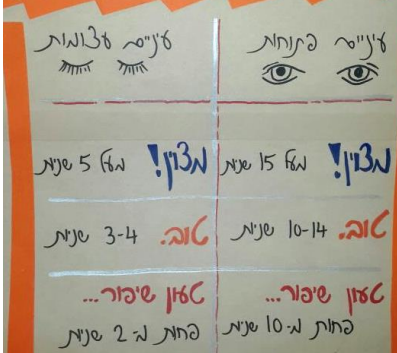 עיניים פתוחות
מצוין! מעל 15 שניות
טוב. 10-14 שניות
טעון שיפור...
פחות מ-10 שניות
עיניים עצומות
מצוין! מעל 5 שניות
טוב. 3-4 שניות
טעון שיפור...
פחות מ-2 שניות